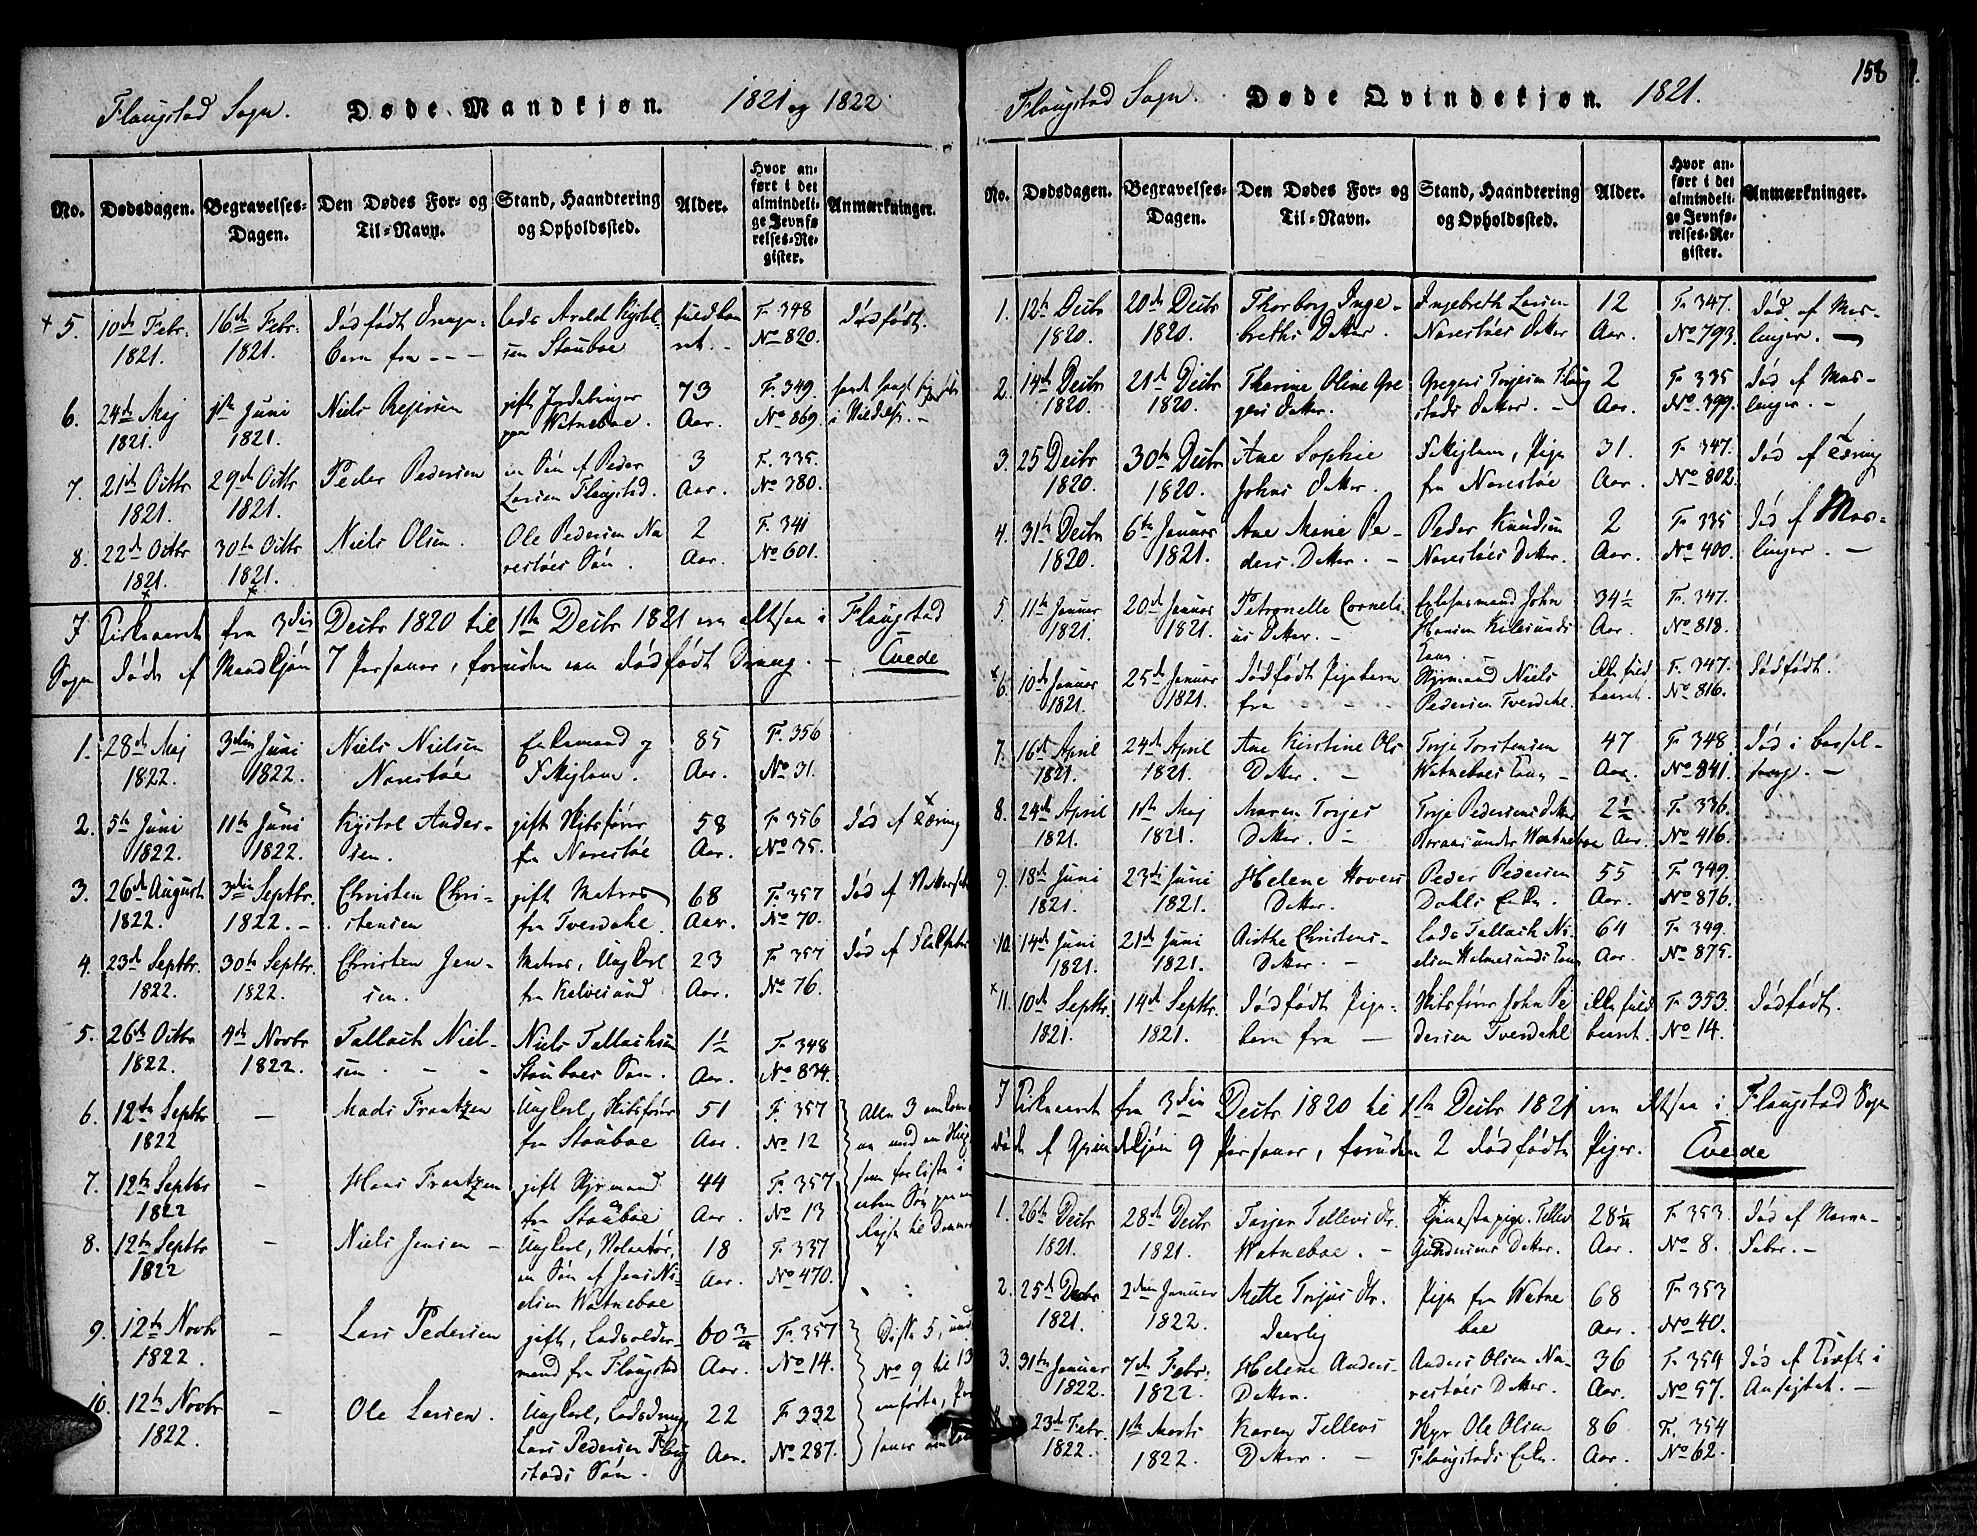 Flaugstad Sogn. Døde Mandkjøn. 1821 og 1822
No. Dødsdagen. Begravelses-Dagen. Den Dødes For- og Til-Navn. Stand, Haandtering og Opholdssted. Alder. Hvor anført i det almindelige Jevnførelses-Register. Anmærkninger.
+ 5. 10de Febr. 16de Febr. Dødfødt Drenge- Lods Arold Kystol- fuldbaa F. 348 Dødfødt.
1821. 1821. barn fra - - - sen Stauboe ret. - No 820.
6. 24de Maj 1ste Juni Niels Rejersen gift Jordbruger 73 F. 349.
1821. 1821. paa Watneboe. Aar. No 869.
7. 21de Octbr 29de Octbr Peder Pedersen en Søn af Peder 3 F. 335.
1821. 1821. Larsen Flaugstad. Aar. No 380.
8. 22de Octbr 30te Octbr Niels Olsen. Ole Pedersen Na 2 F. 341
1821. 1821. restøes Søn. Aar. No 601.
I Kirkeaaret fra 3die Decbr 1820 til 1ste Decbr 1821 ere altsaa i Flaugstad
Sogn døde af Mandkjøn 7 Personer, foruden een dødfødt Dreng. - Tvede
1. 28de Maj 3die Juni Niels Nielsen Enkemand og 85 F. 356
1822. 1822. Narestøe Skiflem. Aar. No 31.
2. 5te Juni 11te Juni Kystol Ander- gift Skibsfører 58 F. 356 Død af Tæring
1822. 1822. sen. fra Narestøe Aar. No 35.
3. 26de August 3die Septbr. Christen Chri- gift Matros 68 F. 357 Død af
1822. 1822. - stensen fra Tverdahl. Aar. No 70.
4. 23de Septbr. 30te Septbr. Christen Jen- Matros, Ungkarl 23 F. 357 Død af
1822. 1822. sen. fra Kalvesund Aar. No 76.
5. 26de Octbr 4de Novbr Tallach Niel- Niels Tallachsen 1½ F. 348
1822. 1822. sen. - - Stauboes Søn. Aar. No 834.
6. 12te Septbr - Mads Frantzen Ungkarl, Skibsfører 51 F. 357 Alle 3 omkom-
1822 fra Stauboe Aar. No 12
7. 12te Septbr - Hans Frantzen gift Styrmand 44 F. 357 som forliste i
1822 fra Stauboe Aar. No 13
8. 12te Septbr - Niels Jensen - Ungkarl, 18 F. 337
1822 en Søn af Jens Ni- Aar. No 470.
elsen Watneboe
9. 12te Novbr - Lars Pedersen gift, Lodsolder- 60¾ F. 357 Disse 5, und
1822. mand fra Flaugstad Aar. No 14. No 9 til 13
10. 12te Novbr - Ole Larsen. Ungkarl, Lodsdreng 22 F. 332 anførte, Per
1822. Lars Pedersen Flaug Aar. No 287. soner omkom
stads Søn.
158
Flaugstad Sogn. Døde Qvindekjøn. 1821.
No. Dødsdagen. Begravelses-Dagen. Den Dødes For- og Til-Navn. Stand, Haandtering og Opholdssted. Alder. Hvor anført i det almindelige Jevnførelses-Register. Anmærkninger.
1. 12te Decbr 20de Decbr Thorborg Inge- Ingebreth Larsen 12 F. 347. Død af Mæs-
1820. 1820. breths Datter. Narestøes Datter Aar. No 793. linger. -
2. 14de Decbr 21de Decbr Tharine Oline Gre Gregers Torjesen Flaug 2 F. 335 Død af Mæs-
1820. 1820. gers Datter. stads Datter. - Aar. No 399. linger. -
3. 25 Decbr 30te Decbr Ane Sophie Skiflem, Pige 31. F. 347. Død af Tæring
1820. 1820. Johns Datter. fra Narestøe Aar. No 802.
4. 31te Decbr 6te Januar Ane Marie Pe- Peder Knudsen 2 F. 335 Død af Mæs-
1820. 1821. ders Datter. - Narestøes Datter. Aar. No 400. linger. -
5. 11te Januar 20de Januar Petronelle Corneli- John 34½ F. 347.
1821. 1821. us Datter. - Hansen Kalvesunds Aar. No 818.
Kone.
+ 6. 10de Januar 25de Januar Dødfødt Pigebarn Styrmand Niels ikke fuld F. 347. Dødfødt.
1821. 1821. fra - - Pedersen Tverdahl. baaret. No 816.
7. 16de April 24de April Ane Kirstine Ols Torje Torstensen 47 F. 348 Død i Barsel-
1821. 1821. Datter. - Watneboes Kone - Aar. No 841. seng. -
8. 24de April 1ste Maj Maren Torjes Torje Pedersens Datter 2½ F. 336.
1821. 1821. Datter. - under Watneboe Aar. No 416.
9. 18de Juni 23de Juni Helene Hovers Peder Pedersen 55 F. 349.
1821. 1821. Datter. Dahls Enke. Aar. No 876.
10. 14de Juni 21de Juni Birthe Christens- Lods Tallach Ni- 64 F. 349.
1821. 1821. Datter. - elsen Holmesunds Kone Aar. No 875.
+ 11. 10de Septbr. 14de Septbr. Dødfødt Pige- Skibsfører John Pe ikke fuld F. 353 Dødfødt.
1821. 1821. barn fra - dersen Tverdahl baaret. No 14.
I Kirkeaaret fra 3die Decbr 1820 til 1ste Decbr 1821 ere altsaa i Flaugstad Sogn
døde af Qvindekjøn 9 Personer, foruden 2 dødfødte Piger. Tvede
1. 26te Decbr 28de Decbr Torjer Tellevs Dr. Tjenestepige. Tellev 28¼ F. 353. Død af Nerve-
1821. 1821. Watneboe. - Gundersens Datter. Aar. No 8. Feber. -
2. 25de Decbr 2den Januar Mette Torjus Dr. Pige fra Watne 68 F. 353
1821. 1822. boe Aar. No 40.
3. 31te Januar 7de Febr. Helene Anders- Anders Olsen Na- 36 F. 354 Død af Kræft i
1822. 1822. Datter. restøes Datter. Aar. No 57. Ansigtet. -
23de Febr. 1ste Marts Karen Tellevs Ole Olsen 86 F. 354
1822. 1822. Datter. - Flaugstads Enke. Aar. No 62.